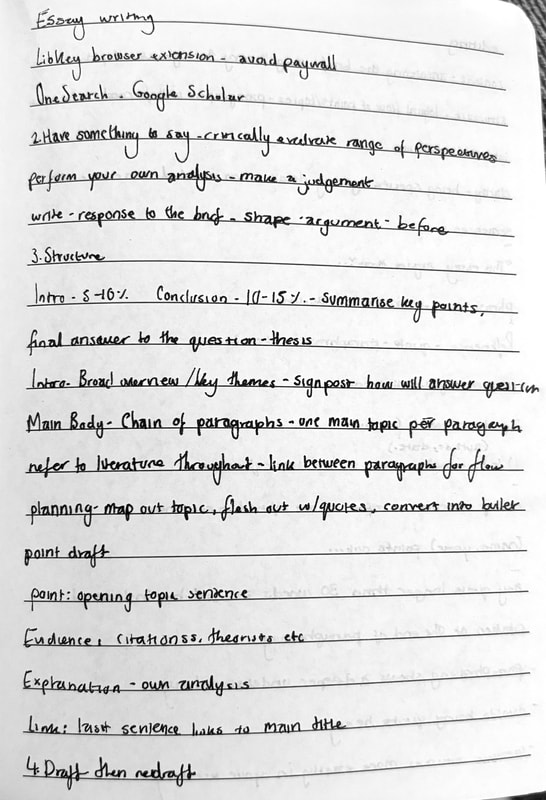 Essay writing
LibKey browser extension - avoid paywall
OneSearch - Google Scholar
2. Have something to say - critically evaluate range of perspectives
perform your own analysis - make a judgement
write - response to the brief - shape - argument - before
3. Structure
Intro - 5-10% Conclusion - 10-15% - summarise key points,
final answer to the question - thesis
Intro - Broad overview / key themes - signpost how will answer question
Main Body - Chain of paragraphs - one main topic per paragraph
refer to literature throughout - link between paragraphs for flow
planning - map out topic, flesh out w/quotes, convert into bullet
point draft
point: opening topic sentence
Evidence: citationss, theorists etc
Explanation - own analysis
Link: last sentence links to main title
4. Draft then redraft